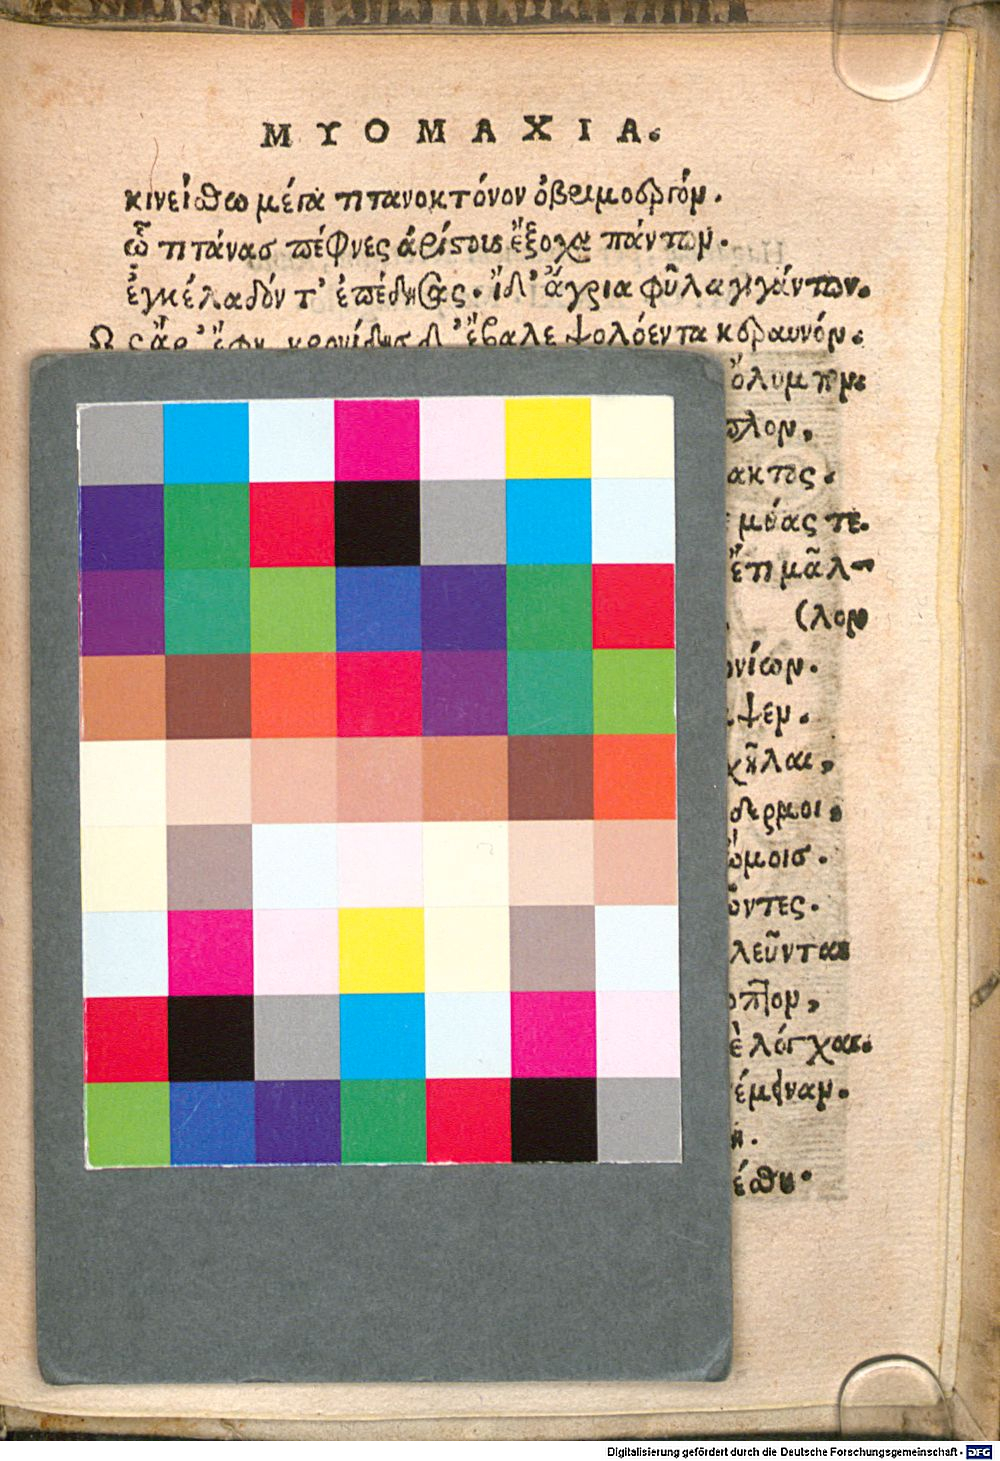 ΜΥΟΜΑΧΙΑ.
κινείσθω μέγα τιτανοκτόνον ὀβριμοεργόν.
ᾧ τιτάνασ πέφνες ἀρίστους ἔξοχα πάντων.
ἐγκέλαδόν τ' ἐπέδησας. ἰδ' ἄγρια φῦλα γιγάντων.
Ως ἄρ' ἔφη, κρονίδης δ' ἔβαλε ψολόεντα κεραυνόν.
ὄλυμπον.
πλον,
ακτος.
μύας τε.
ἔτι μᾶλ-
(λον
ονίων.
ψεν.
χῆλαι,
δερμοι,
ώμοισ.
ῶντες.
λεῦνται
όπλον,
ὲ λόγχαι.
έμειναν.
έσθη.
Digitalisierung gefördert durch die Deutsche Forschungsgemeinschaft - DFG